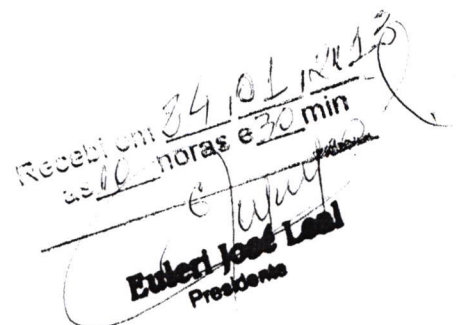 Recebi em 24/01/2013
as 10 horas e 30 min
Euleri José Leal
Presidente